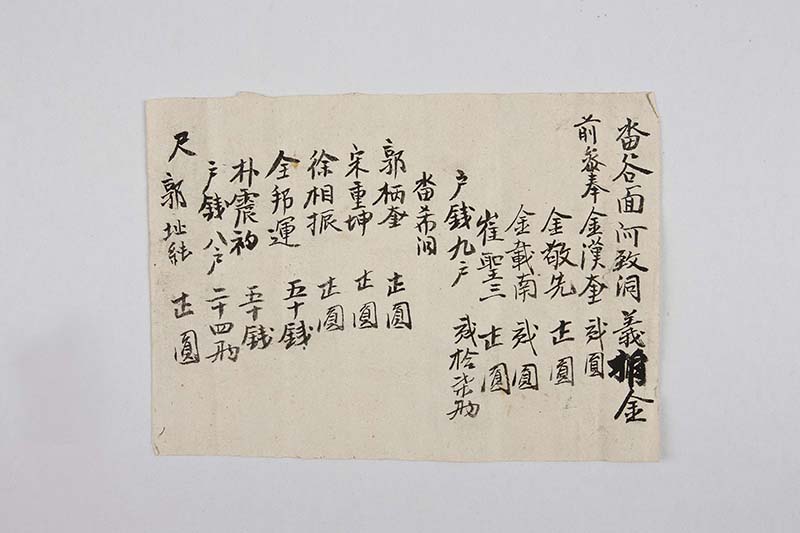 畓谷面河致洞義捐金
前參奉金漢奎 貳圓
金敬先 壱圓
金載南 貳圓
崔聖三 壱圓
戶錢九戶 貳拾柒
畓芾洞
郭柄奎 壱圓
宋重坤 壱圓
徐相振 壱圓
全邦運 五十錢
朴震 五十錢
戶錢八戶 二十四
尺郭 壱圓